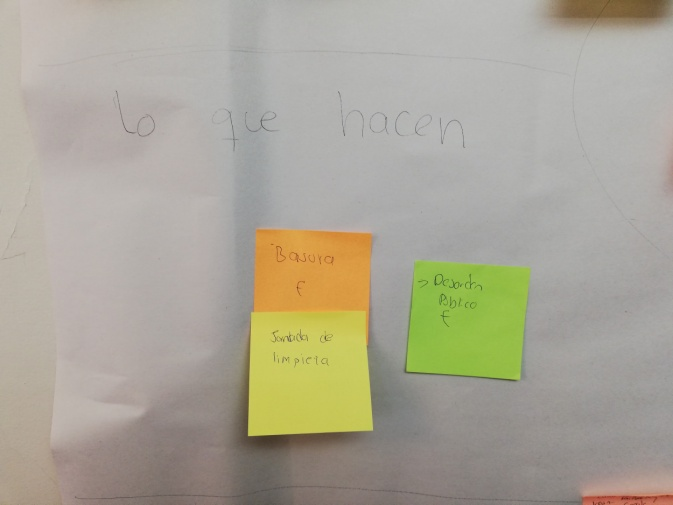 lo que hacen
Basura
€
Jornada de
limpieza
-> Desorden
Público
€